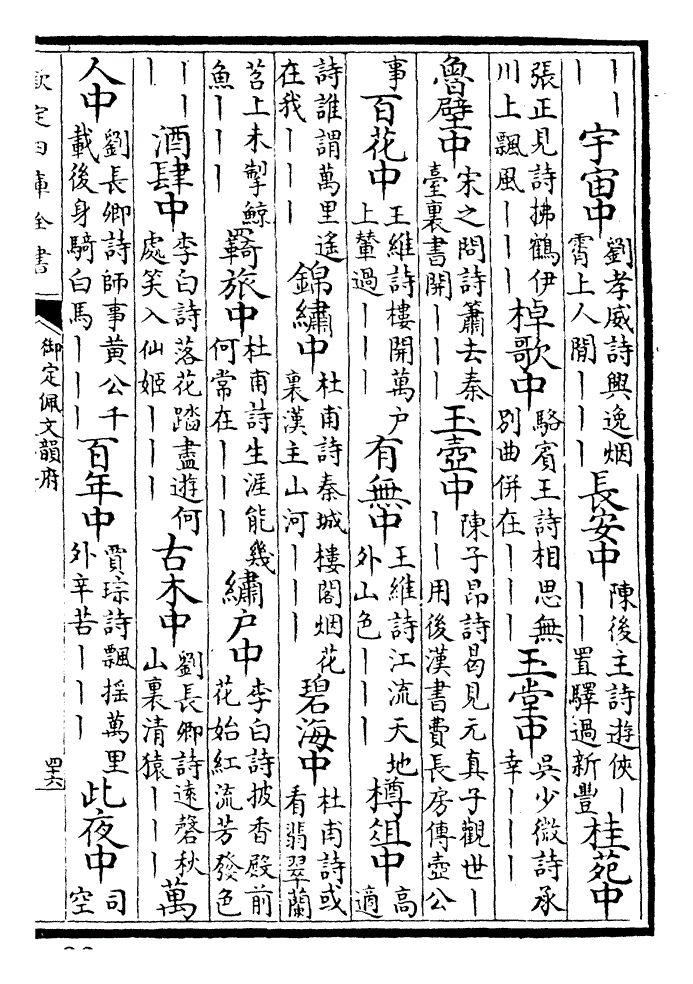 ｜｜｜宇宙中劉孝威詩興逸烟霄上人閒｜｜｜長安中陳後主詩遊俠｜｜｜置驛過新豐桂苑中
張正見詩拂鶴伊川上飄風｜｜｜棹歌中駱賓王詩相思無別曲併在｜｜｜玉堂中吳少微詩承幸｜｜｜
魯壁中宋之問詩簫去秦臺裏書開｜｜｜玉壺中陳子昂詩曷見元真子觀世｜｜｜用後漢書費長房傳壺公
事百花中王維詩樓開萬户上輦過｜｜｜有無中王維詩江流天地外山色｜｜｜樽俎中高適
詩誰謂萬里遙在我｜｜｜錦繡中杜甫詩秦城樓閣烟花裏漢主山河｜｜｜碧海中杜甫詩或看翡翠蘭
苕上未掣鯨魚｜｜｜羇旅中杜甫詩生涯能幾何常在｜｜｜繡户中李白詩披香殿前花始紅流芳發色
｜｜｜酒肆中李白詩落花踏盡遊何處笑入仙姬｜｜｜古木中劉長卿詩遠磬秋山裏清猿｜｜｜萬
人中劉長卿詩師事黃公千載後身騎白馬｜｜｜百年中賈琮詩飄揺萬里外辛苦｜｜｜此夜中司空
欽定四庫全書
御定佩文韻府
四十六